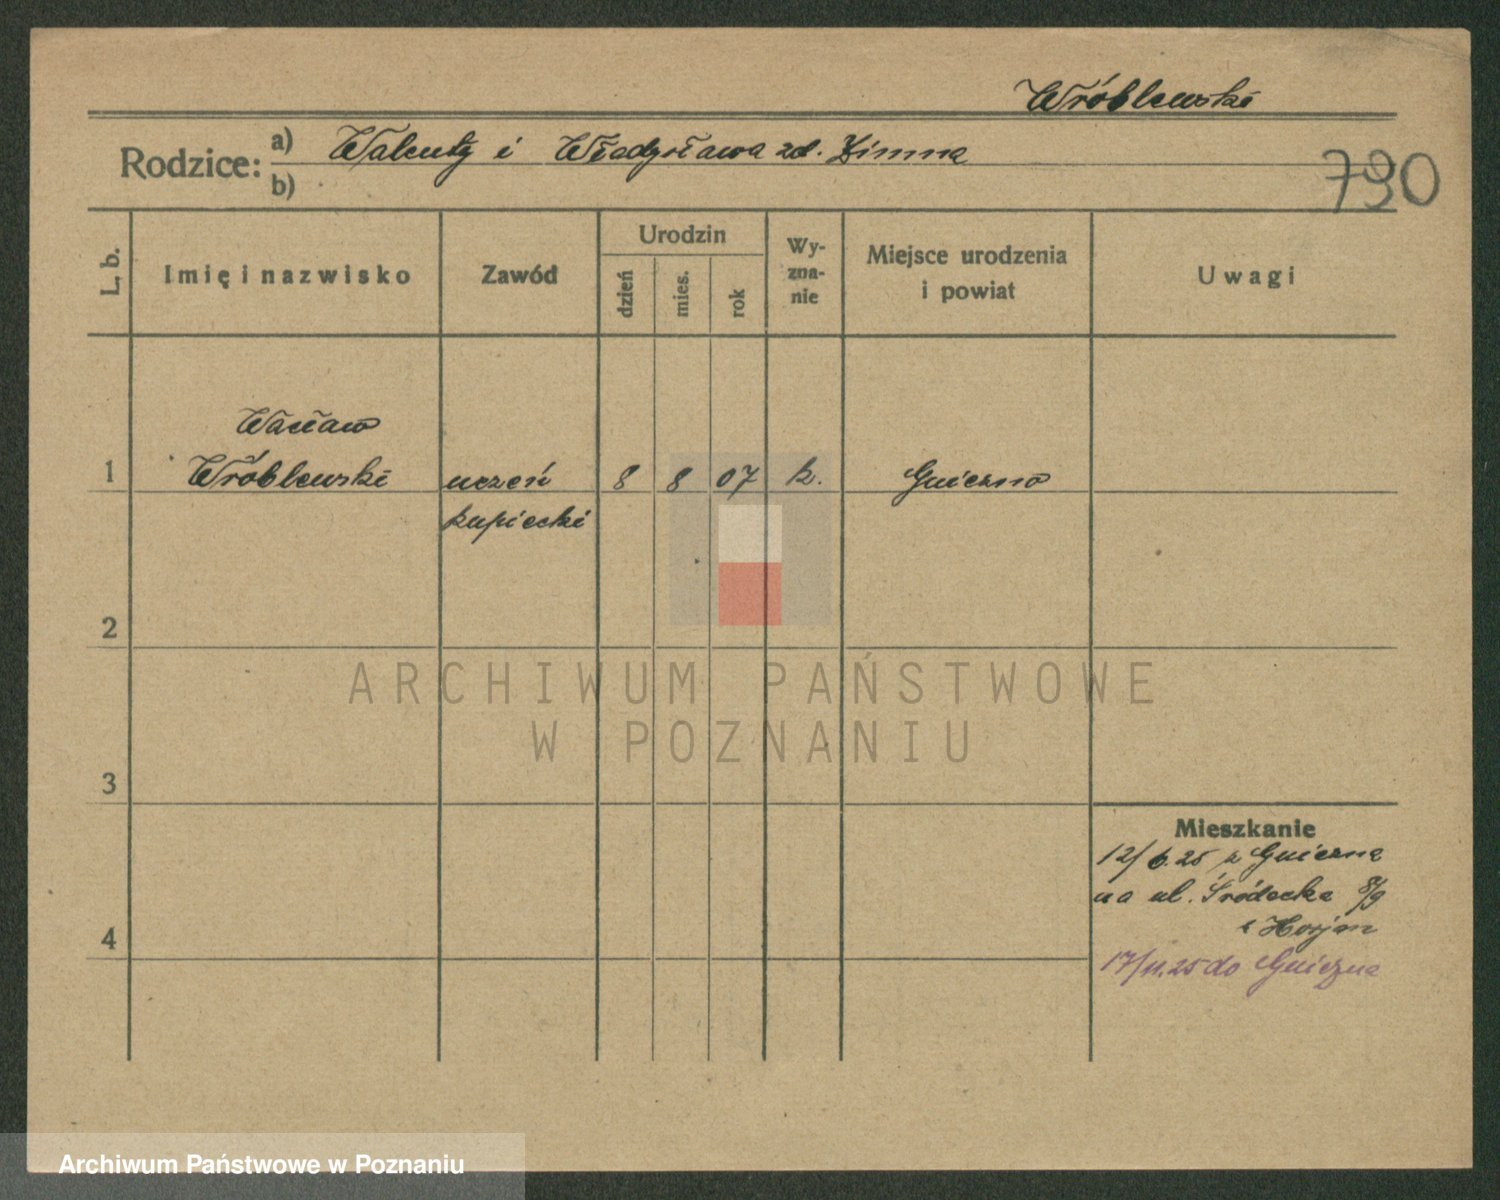 Wróblewski
Rodzice: a) Walenty i Władysława zd. Zimna
b)
790
L. b. Imię i nazwisko Zawód Urodzin dzień mies. rok Wy-zna-nie Miejsce urodzenia i powiat Uwagi
Wacław
1 Wróblewski uczeń 8 8 07 k. Gniezno
kupiecki
2
ARCHIWUM PAŃSTWOWE
W POZNANIU
3
Mieszkanie
12/6.25 z Gniezna
na ul. Śródecka 8/9
4
17/11.25 do Gniezna
Archiwum Państwowe w Poznaniu